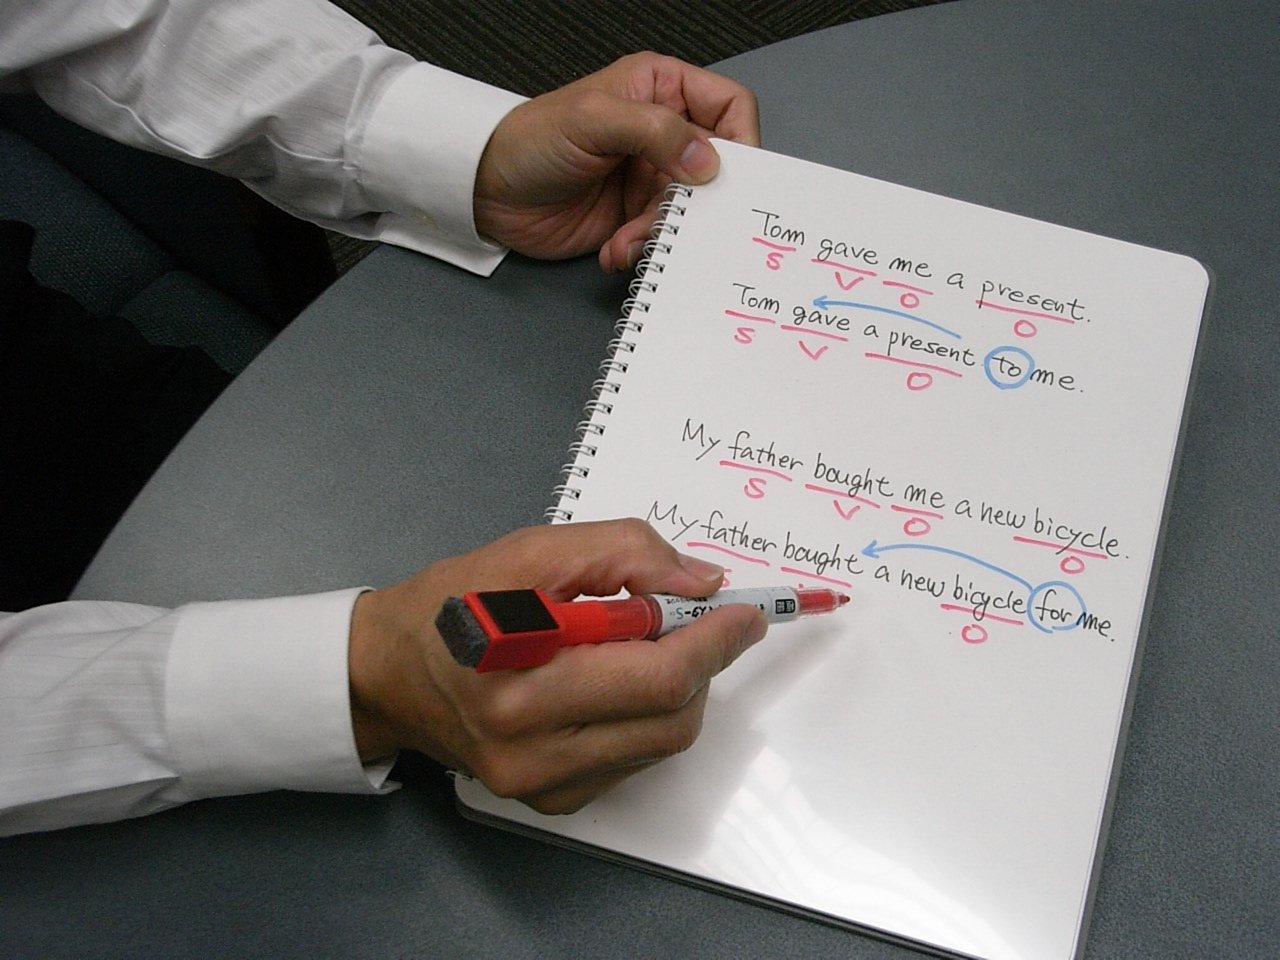 Tom gave me a present.
S V O O
Tom gave a present to me.
S V O
My father bought me a new bicycle.
S V O O
My father bought a new bicycle for me.
S O